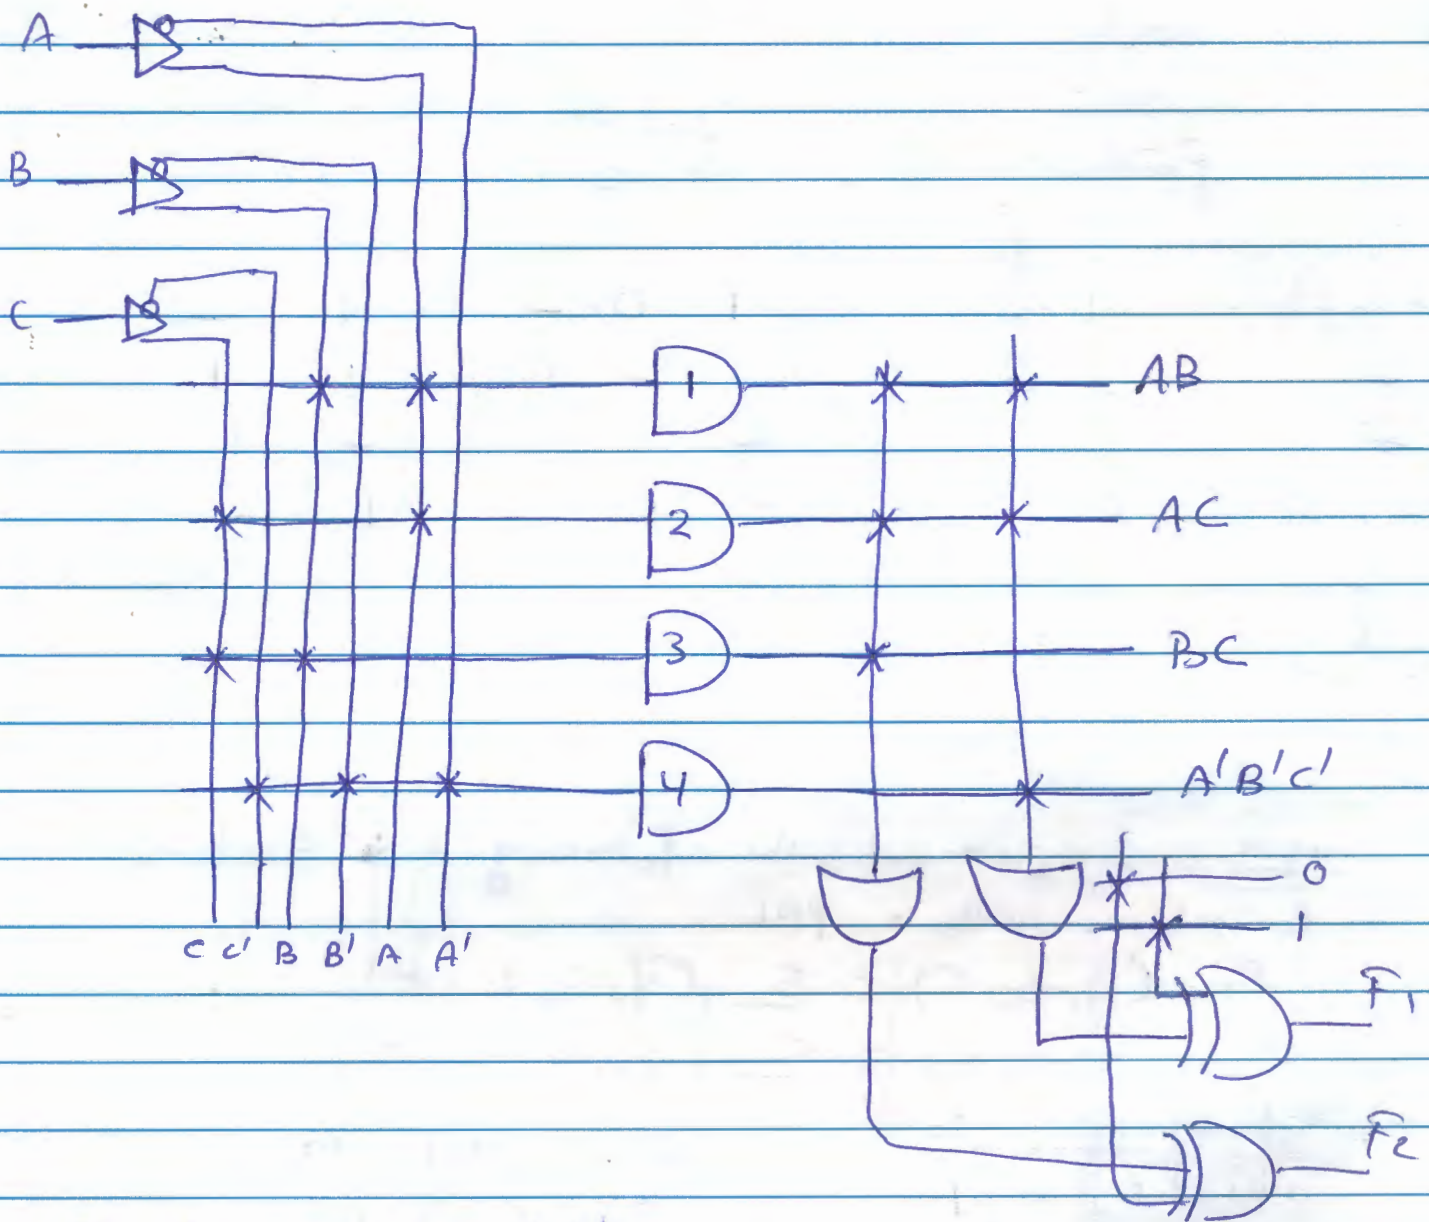 A
B
C
1 AB
2 AC
3 BC
4 A'B'C'
0
1
C C' B B' A A'
F1
F2